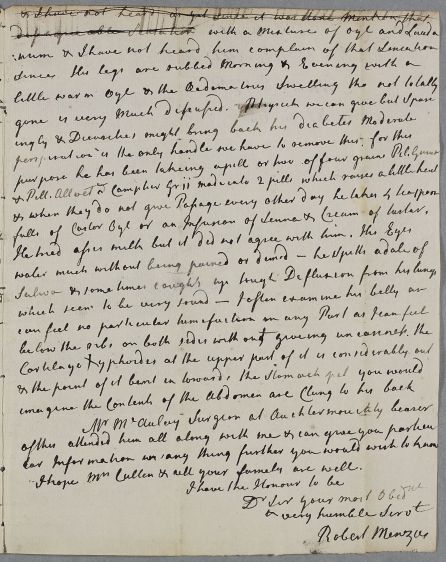 & I have not heard as yet since it was done mention that
disagreeable sensation with a Mixture of Oyl and Lauda
num & I have not heard him complain of that Sensation
since. His legs are rubbed Morning & Evening with a
little warm Oyl & the Oedematous Swelling tho not totally
gone is very Much Physick we can give but Spar
ingly & Diureticks might bring back his diabetes Moderate
perspiration is the only handle we have to remove this, for this
purpose he has been takeing a pill or two of four grains Pil: Gummos
& Pill. Camphor Gr ij made into 2 pills which raises a little heat
& when they do not give Passage every other day he takes 4 teaspoon
fulls of Castor Oyl or an Infusion of Senna & Cream of tartar.
He tried asses milk but it did not agree with him. The Eyes
water much without being pained or dimed — he Spitts a dale of
Saliva & sometimes caughs up tough Defluxion from his lungs
which seem to be very sound — I often examine his belly an
can feel no particular tumefaction in any Part as I can feel
below the ribs on both sides without giveing uneasiness. the
Cartilage Xyphoides at the upper part of it is considerably out
& the point of it bent in towards the Stomach you would
imagine the Contents of the Abdomen are Clung to his back
Mr McAulay Surgeon at Auchtermouchty bearer
of this attended him all along with me & can give you particu
lar Information any thing further you would wish to know
I hope Mrs Cullen & all your family are well.
I have the Honour to be
Dr Sir your most Obedient
& very humble Servt
Robert Menzies